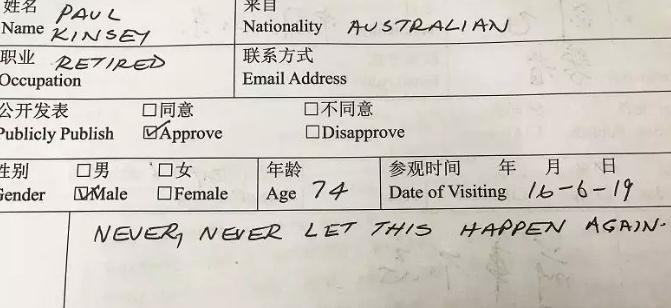 姓名 PAUL 来自
Name KINSEY Nationality AUSTRALIAN
职业 RETIRED 联系方式
Occupation Email Address
公开发表 □同意 □不同意
Publicly Publish ☑Approve □Disapprove
性别 □男 □女 年龄 参观时间 年 月 日
Gender ☑Male □Female Age 74 Date of Visiting 16-6-19
NEVER, NEVER LET THIS HAPPEN AGAIN.